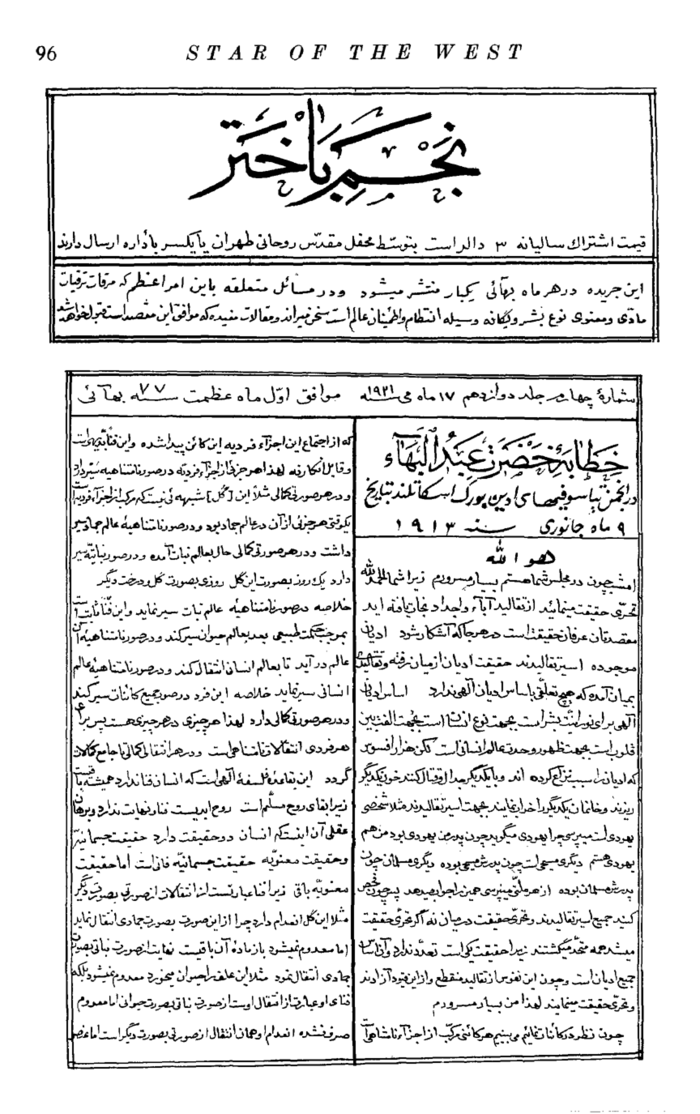 96
STAR OF THE WEST
نجم باختر
قیمت اشتراک سالیانه ۳ دالر است بتوسّط محفل مقدّس روحانی طهران یا یکسر باداره ارسال دارند
این جریده در هر ماه بهائی یکبار منتشر میشود و در مسائل متعلقه باین امر اعظم که مرقات ترقیات
مادّی و معنوی نوع بشر و یگانه وسیله انتظام و اطمینان عالم است سخن میراند و مقالات مفیده که موافق این مقصد است قبول خواهد شد
شمارهٔ چهارم جلد دوازدهم ۱۷ ماه می ۱۹۲۱ موافق اوّل ماه عظمت سنه ۷۷ بهائی
خطابهٔ حضرت عبدالبهآء
در انجمن تیاسوفیهای ادین بورگ اسکاتلند بتاریخ
۹ ماه جانوری سنه ۱۹۱۳
هو الله
امشب چون در مجلس شما هستم بسیار مسرورم زیرا شما الحمد لله
تحرّی حقیقت مینمائید از تقالید آباء و اجداد نجات یافته اید
مقصدتان عرفان حقیقت است در هر جا که آشکار شود ادیان
موجوده اسیر تقالیدند حقیقت ادیان از میان رفته و تقالیدی
بمیان آمده که هیچ تعلّقی باساس ادیان الهی ندارد اساس ادیان
الهی برای نورانیّت بشر است بجهت نوع انسان است بجهت الفت بین
قلوب است بجهت ظهور وحدت عالم انسانی است لکن هزار افسوس
که ادیان را سبب نزاع کرده اند و با یکدیگر جدال و قتال کنند خون یکدیگر
ریزند و خانمان یکدیگر را خراب نمایند بجهت اسیر تقالیدند مثلا شخصی
یهودی است میپرسی چرا یهودی میگوید چون پدرم یهودی بود من هم
یهودی هستم دیگری مسیحی است چون پدرش مسیحی بوده دیگری مسلمان چون
پدرش مسلمان بوده از هر ملّتی میپرسی همین را جواب میدهد پس چون تفحص
کنید جمیع اسیر تقالیدند و تحرّی حقیقت در میان نه اگر تحرّی حقیقت
میشد همه متّحد میگشتند زیرا حقیقت یکی است تعدّد ندارد و آن اساس
جمیع ادیان است و چون این نفوس از تقالید منقطع و از این قیود آزادند
و تحرّی حقیقت مینمایند لهذا من بسیار مسرورم
چون نظر در کائنات نمائیم می بینیم هر کائنی مرکّب از اجزاء نامتناهی است
که از اجتماع این اجزاء فردیه این کائن پیدا شده و این فنّاً بدیهی است
و قابل انکار نه لهذا هر جزئی از اجزاء فردیّه در صور نامتناهیه سیر دارد
و در هر صورتی کمالی مثلا این [گل] شبهه ئی نیست که مرکّب از اجزاء فردیّه است
یکوقتی هر جزئی از آن در عالم جماد بود و در صور نامتناهیه عالم جماد سیر
داشت و در هر صورتی کمالی حال بعالم نبات آمده و در صور نباتیّه سیر
دارد یک روز بصورت این گل روزی بصورت گل و درخت دیگر
خلاصه در صور نامتناهیه عالم نبات سیر نماید و این فنّاً ثابت است
بموجب حکمت طبیعی بعد بعالم حیوان سیر کند و در صور نامتناهیه آن
عالم در آید تا بعالم انسان انتقال کند و در صور نامتناهیه عالم
انسانی سیر نماید خلاصه این فرد در صور جمیع کائنات سیر کند
و در هر صورتی کمالی دارد لهذا هر چیزی در هر چیزی هست پس برای
هر فردی انتقالات نامتناهی است و در هر انتقالی کمالی تا جامع کمالات
گردد این قاعدهٔ فلسفهٔ الهی است که انسان فنا ندارد همیشه باقیست
زیرا بقای روح مسلّم است روح ابدیست فنا و نهایت ندارد و برهان
عقلی آن اینست که انسان دو حقیقت دارد حقیقت جسمانیّه
و حقیقت معنویّه حقیقت جسمانیّه فانی است امّا حقیقت
معنویّه باقی زیرا فنا عبارتست از انتقالات از صورتی بصورت دیگر
مثلا این گل انعدام دارد چرا از این صورت بصورت جمادی انتقال نماید
امّا معدوم نمیشود باز مادهٔ آن باقیست نهایت از صورت نباتی بصورت
جمادی انتقال نمود مثلا این علف را حیوان میخورد معدوم نمیشود بلکه
فنای او عبارت از انتقال اوست از صورت نباتی بصورت حیوانی اما معدوم
صرف نشده انعدام او همان انتقال از صورتی بصورت دیگر است اما عنصر